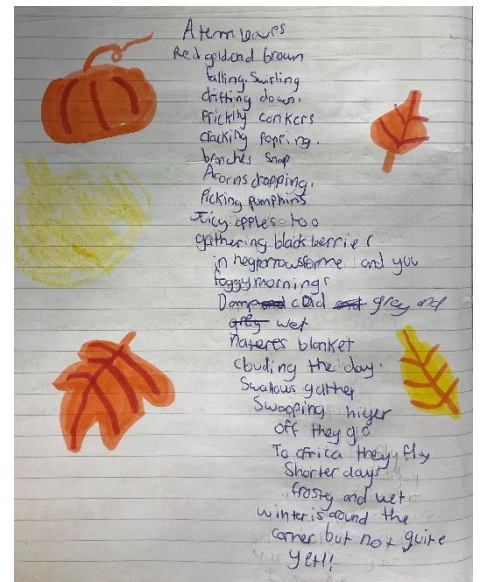 Atemn leaves
Red gold and brown
falling. Swirling
drifting down.
Prickly conkers
cracking Popping.
branches snap
Acorns dropping.
Picking pumphins
Juicy apples too
gathering blackberries
in hegrorrows for me and you
foggy mornings
Damp and cold and grey and
grey wet
Nateres blanket
clouding the day.
Swallows gather
Swooping higer
off they go
To africa they fly
Shorter days
frosty and wet
winter is around the
corner but not quite
yet!!